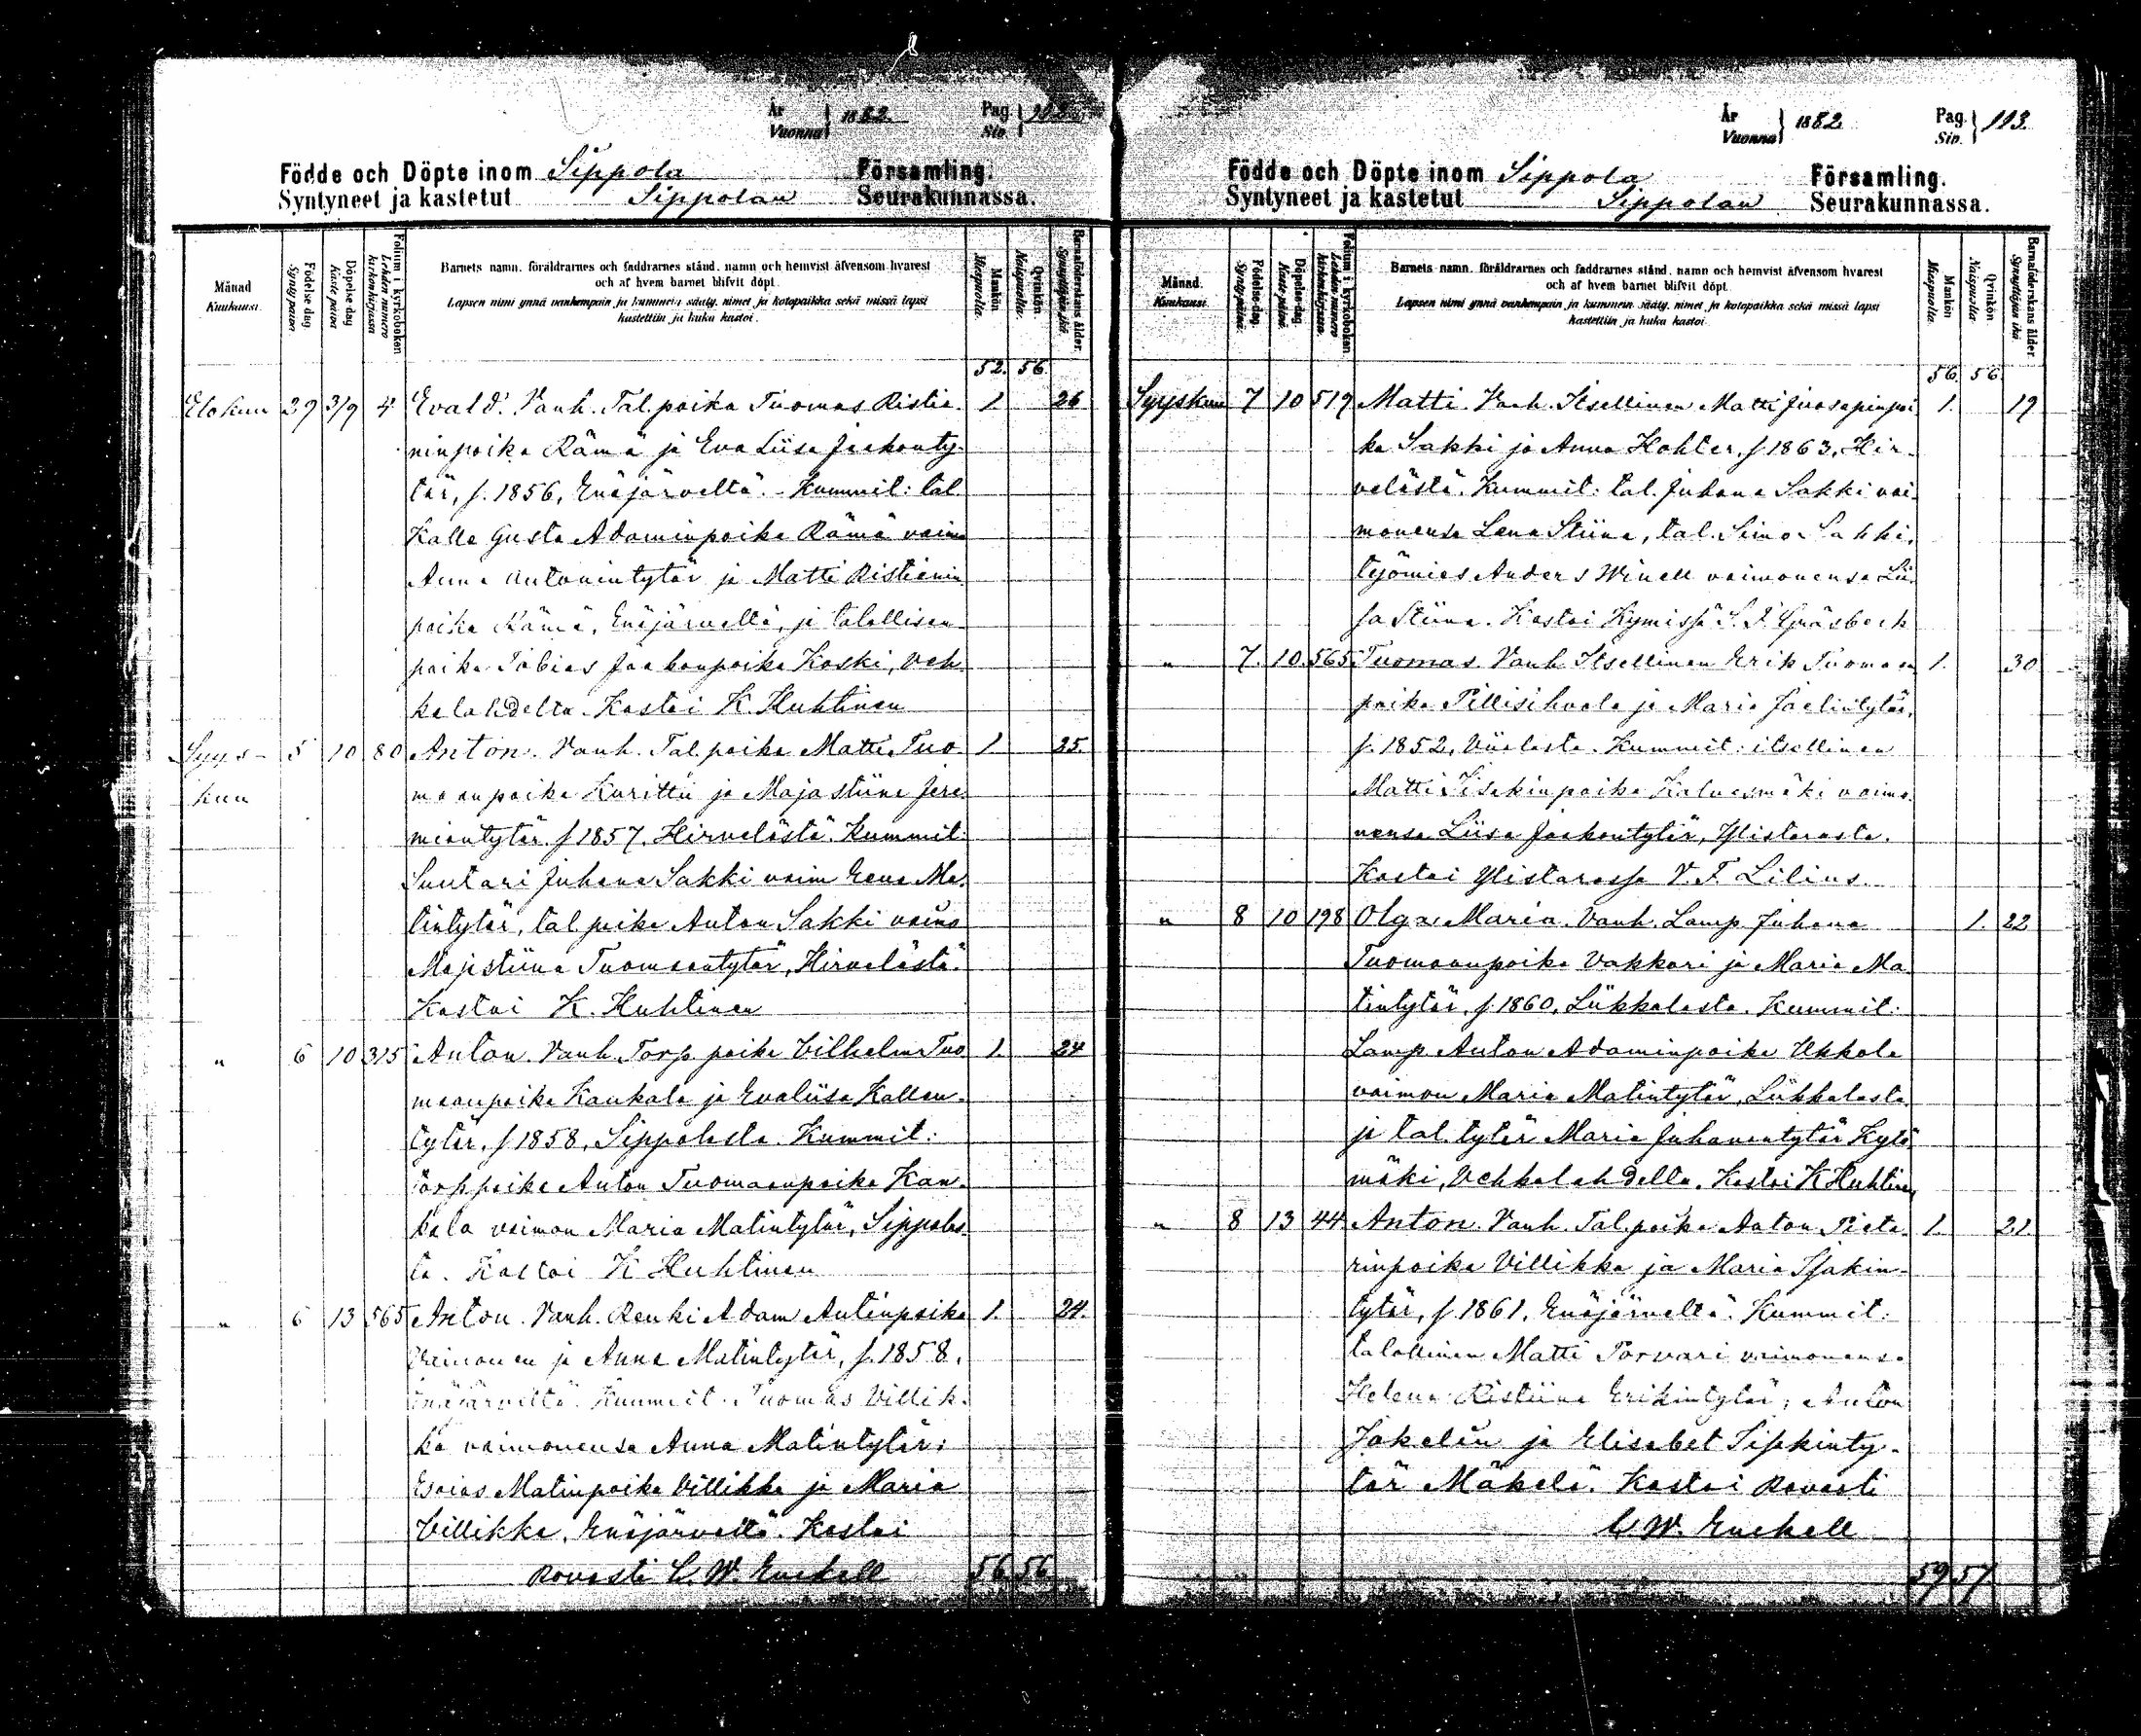 År 1882. Pag.
Vuonna Siv.
Födde och Döpte inom Sippola Församling.
Syntyneet ja kastetut Sippolan Seurakunnassa.
Månad
Kuukausi
Födelse dag
Syntg päivä
Döpelse dag
Kaste päivä
Folium i kyrkoboken
Lehden numero
kirkonkirjassa
Barnets namn, föräldrarnes och faddrarnes stånd, namn och hemvist äfvensom hvarest
och af hvem barnet blifvit döpt.
Lapsen nimi ynnä vanhempain ja kummein sääty, nimet ja kotopaikka sekä missä lapsi
kastettiin ja kuka kastoi.
Mankön
Miespuolia.
Qvinkön
Naispuolia.
Barnaföderskans ålder.
Synnyttäjän ikä
52. 56.
Elokuu 29 3/9 4 Evald. Vanh. Tal. poika Tuomas Ristia- 1. 26
ninpoika Rämä ja Eva Liisa Jaakonty-
tär, s. 1856, Enäjärveltä. Kummit: tal.
Kalle Gusta Adaminpoika Rämä vaimo
Anna Antonintytär ja Matti Ristianin
poika Rämä, Enäjärveltä, ja talollisen
poika Tobias Jaakonpoika Koski, Veh-
kalahdelta. Kastoi K. Huhtinen
Syys- 5 10 80 Anton. Vanh. Tal. poika Matti Tuo- 1. 25.
kuu maanpoika Kurittu ja Maja Stiina Jere-
miaantytär s 1857, Hirvelästä. Kummit:
Suutari Juhana Sakki vaim Eeva Ma-
tintytär, tal poika Anton Sakki vaimo
Majstiina Tuomaantytär, Hirvelästä.
Kastoi K. Huhtinen
" 6 10 315 Anton. Vanh. Torp. poika Vilhelm Tuo 1. 24
maanpoika Kaukola ja Evaliisa Kallen-
tytär, s 1858, Sippolasta. Kummit:
Torp poika Anton Tuomaanpoika Kau-
kola vaimon Maria Matintytär, Sippolas-
ta. Kastoi K Huhtinen
" 6 13 565 Anton. Vanh. Renki Adam Antinpoika 1. 24.
Vainonen ja Anna Matintytär, s. 1858,
Enäjärveltä. Kummit. Tuomas Villik-
ka vaimonensa Anna Matintytär;
Esaias Matinpoika Villikka ja Maria
Villikka, Enäjärveltä. Kastoi
Rovasti C. W. Enckell 56 56
År 1882. Pag. 113.
Vuonna Siv.
Födde och Döpte inom Sippola Församling.
Syntyneet ja kastetut Sippolan Seurakunnassa.
Månad.
Kuukausi.
Födelse dag.
Syntg päivä.
Döpelse dag.
Kaste päivä.
Folium i kyrkoboken
Lehden numero
kirkonkirjassa.
Barnets namn, föräldrarnes och faddrarnes stånd, namn och hemvist äfvensom hvarest
och af hvem barnet blifvit döpt.
Lapsen nimi ynnä vanhempain ja kummein sääty, nimet ja kotopaikka sekä missä lapsi
kastettiin ja kuka kastoi
Mankön
Miespuolia
Qvinkön
Naispuolia
Barnaföderskans ålder.
Synnyttäjän ikä
56. 56.
Syyskuu 7 10 519 Matti. Vanh. Itsellinen Matti Juosepinpoi 1. 19
ka Sakki ja Anna Kohter, s 1863, Hir-
velästä. Kummit: tal. Juhana Sakki vai
monensa Lena Stiina, tal. Simo Sakki,
työmies Anders Winell vaimonensa Lii-
sa Stiina. Kastoi Kymissä S. F. Gräsbeck
" 7. 10. 565 Tuomas. Vanh. Itsellinen Erik Tuomaan 1. 30
poika Pillisihvola ja Maria Joelintytär,
s. 1852, Viialasta. Kummit: itsellinen
Matti Iisakinpoika vaimo-
nensa Liisa Jaakontytär, Ylistarosta.
Kastoi Ylistarossa V. F. Lilius.
" 8 10 198 Olga Maria. Vanh. Lamp. Juhana 1. 22
Tuomaanpoika Vakkari ja Maria Ma-
tintytär, s. 1860, Liikkalasta. Kummit:
Lamp Anton Adaminpoika Ukkola
vaimon Maria Matintytär, Liikkalasta,
ja tal. tytär Maria Juhanantytär Kytö-
mäki, Vehkalahdella. Kastoi K Huhtinen
" 8 13 44 Anton. Vanh. Tal. poika Anton Pieta- 1. 21.
rinpoika Villikka ja Maria Isakin-
tytär, s. 1861, Enäjärveltä. Kummit:
talollinen Matti Torvari vaimonensa
Helena Ristiina Erikintytär; Anton
Jakelin ja Elisabet Sipkinty-
tär Mäkelä. Kastoi Rovasti
C W. Enckell
59 57